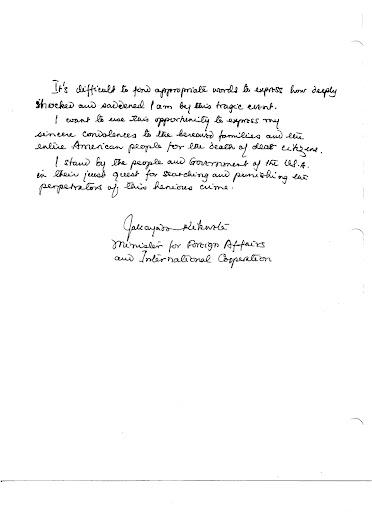 It's difficult to find appropriate words to express how deeply
shocked and saddened I am by this tragic event.
I want to use this opportunity to express my
sincere condolences to the bereaved families and the
entire American people for the death of dear citizens.
I stand by the people and Government of the U.S.A.
in their just quest for searching and punishing the
perpetrators of this heneous crime.
Jakaya Kikwete
Minister for Foreign Affairs
and International Cooperation